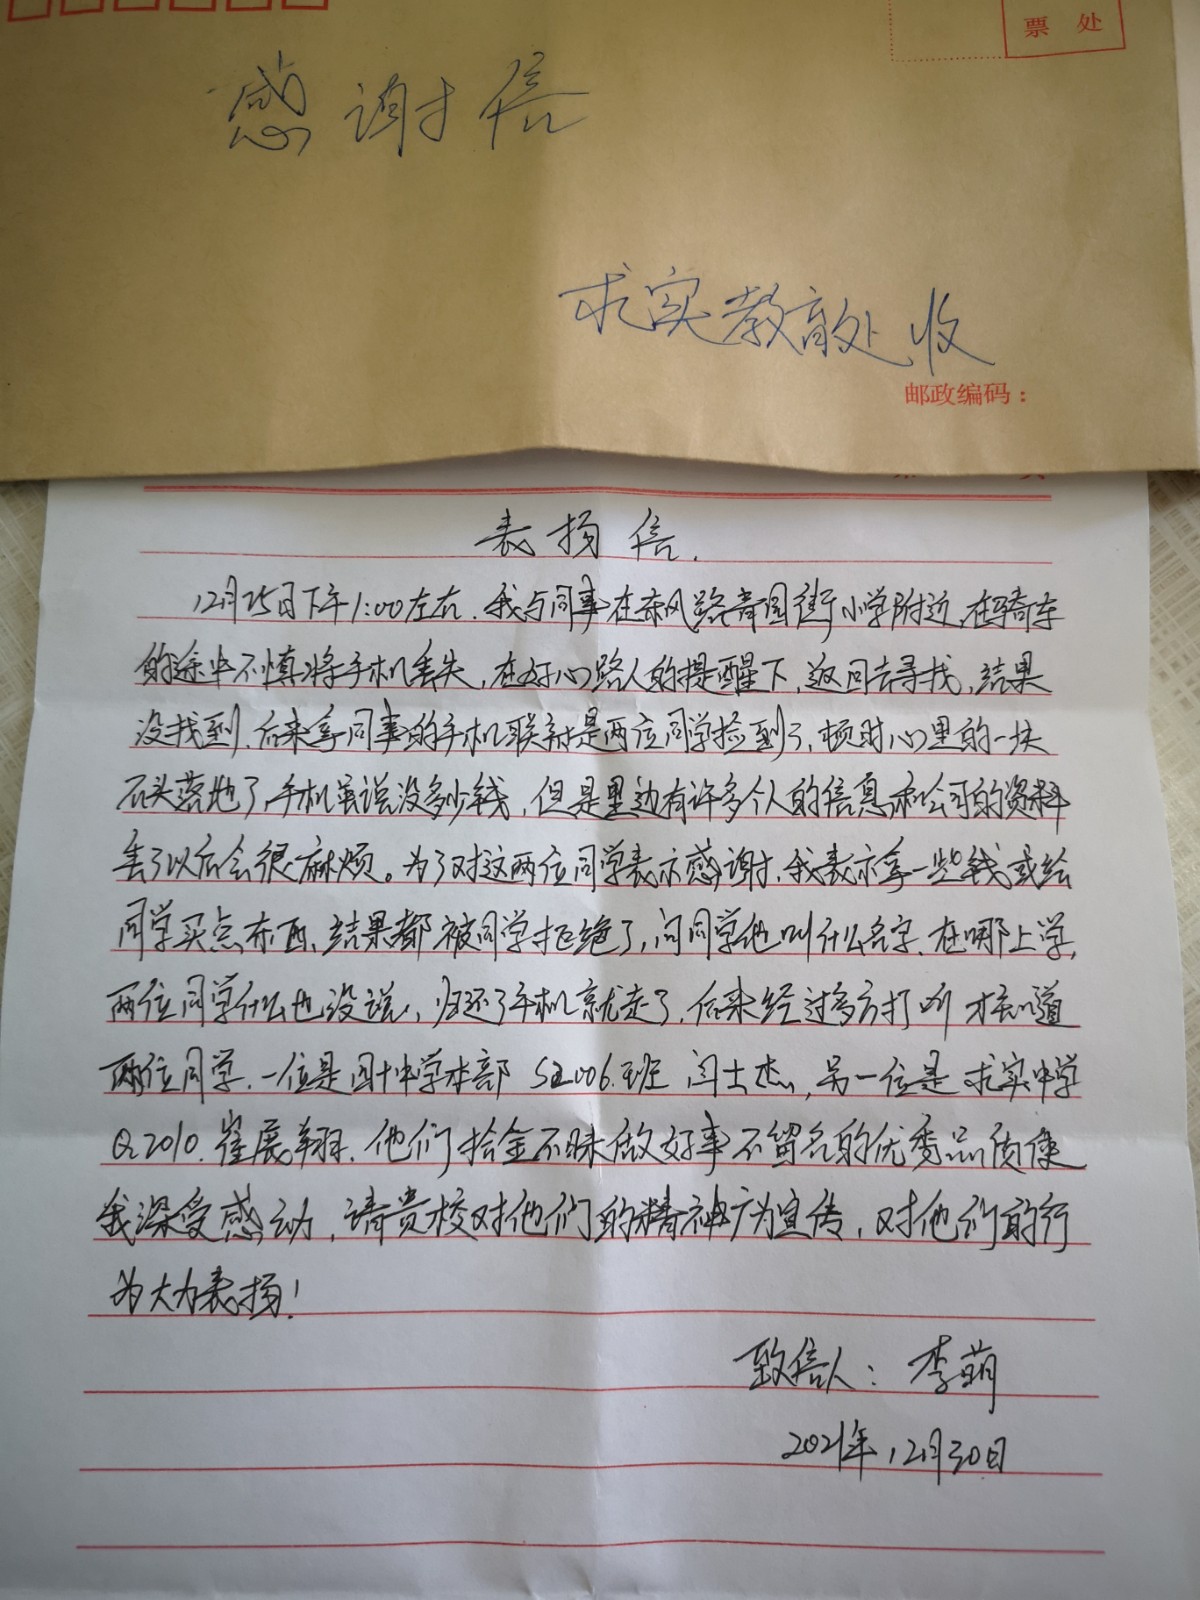 票 处
感谢信
求实教育处 收
邮政编码：
表扬信.
12月25日下午1:00左右.我与同事在东风路青园街小学附近,在骑车
的途中不慎将手机丢失,在好心路人的提醒下,返回去寻找,结果
没找到,后来拿同事的手机联系是两位同学捡到了,顿时心里的一块
石头落地了,手机虽说没多少钱,但是里边有许多个人的信息和公司的资料
丢了以后会很麻烦。为了对这两位同学表示感谢,我表示拿一些钱或给
同学买点东西,结果都被同学拒绝了,问同学他叫什么名字.在哪上学,
两位同学什么也没说,归还了手机就走了,后来经过多方打听才知道
两位同学.一位是四十中学本部 S2006.班 闫士杰,另一位是求实中学
Q2010.崔展翔.他们拾金不昧做好事不留名的优秀品质使
我深受感动,请贵校对他们的精神广为宣传,对他们的行
为大力表扬!
致信人：李萌
2021年12月30日